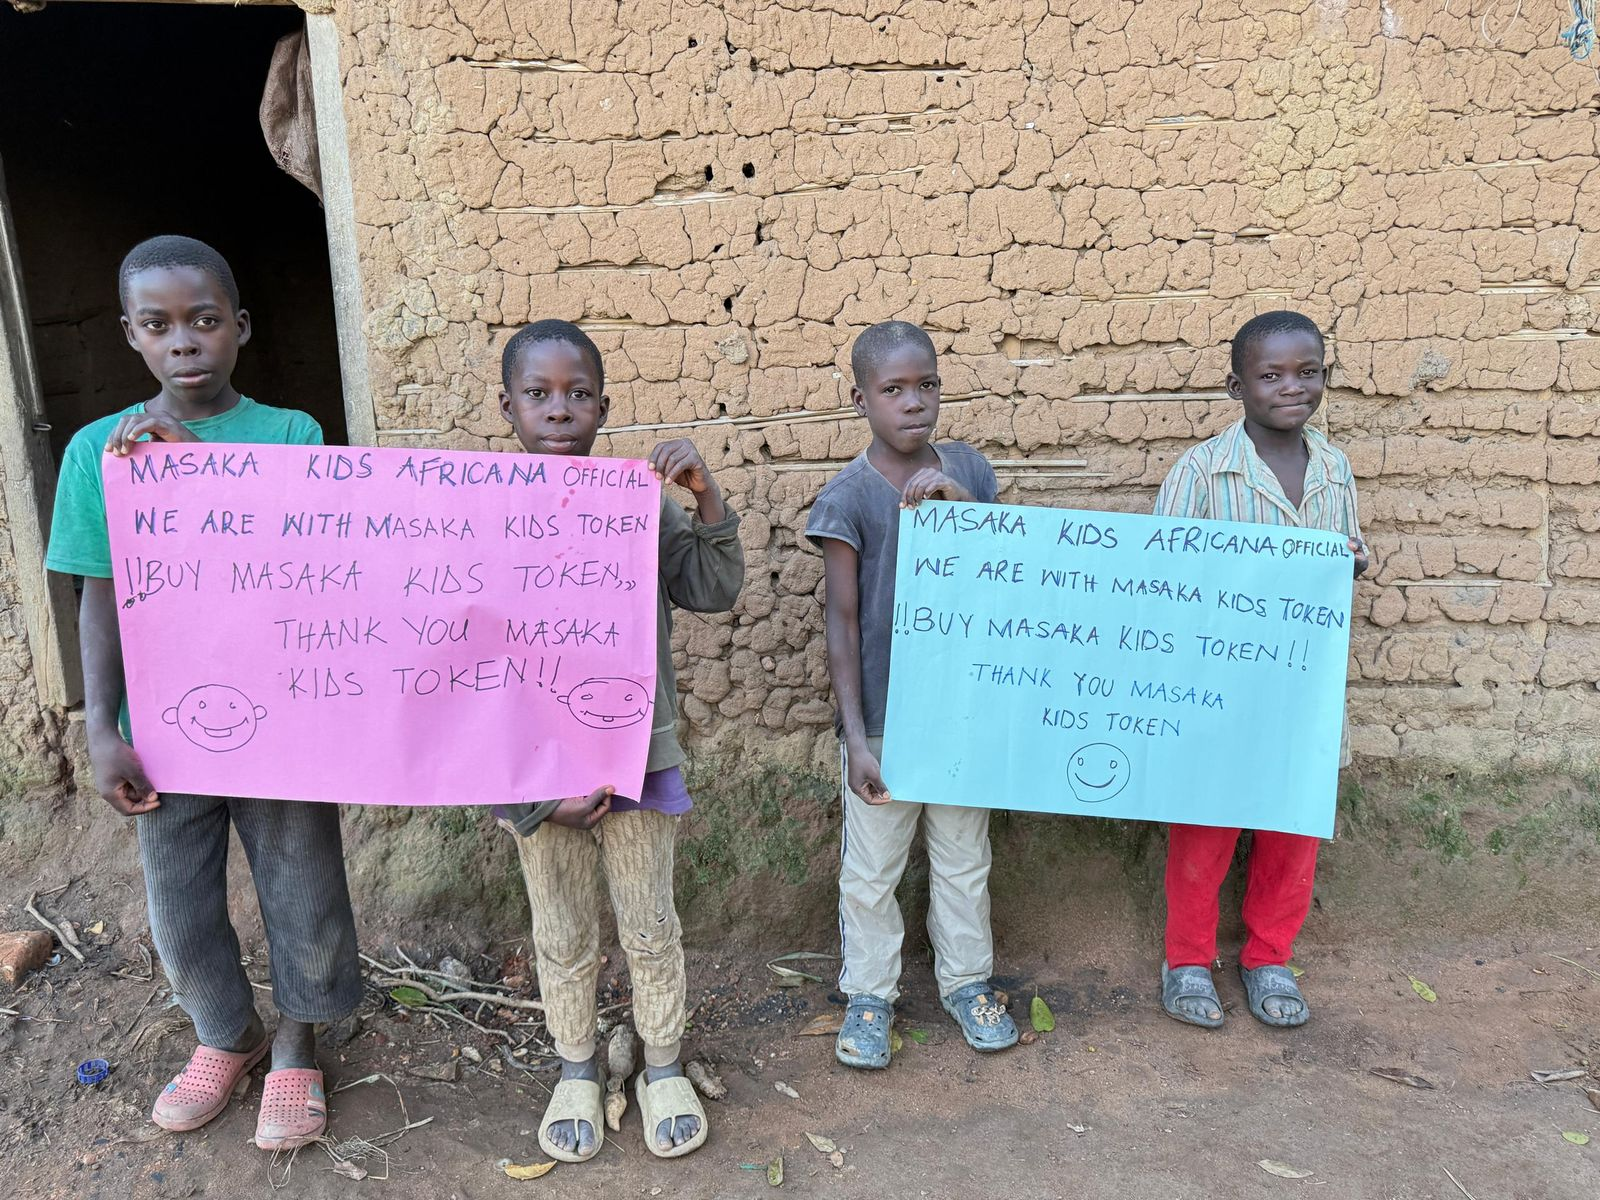 MASAKA KIDS AFRICANA OFFICIAL
WE ARE WITH MASAKA KIDS TOKEN
!!BUY MASAKA KIDS TOKEN,,
THANK YOU MASAKA
KIDS TOKEN!!
MASAKA KIDS AFRICANA OFFICIAL
WE ARE WITH MASAKA KIDS TOKEN
!!BUY MASAKA KIDS TOKEN!!
THANK YOU MASAKA
KIDS TOKEN